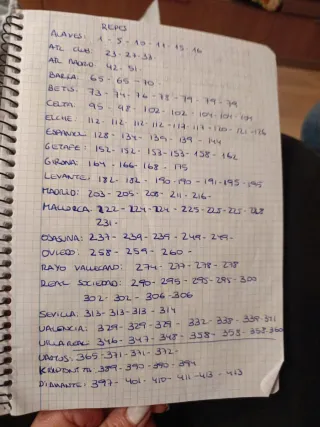 REPES
ALAVÉS: 1 - 5 - 10 - 11 - 15 - 16
ATL CLUB: 23 - 27 - 31
ATL MADRID: 42 - 51 -
BARÇA: 65 - 65 - 70 -
BETIS: 73 - 74 - 76 - 78 - 79 - 79 - 79
CELTA: 95 - 98 - 102 - 102 - 104 - 104 - 104
ELCHE: 112 - 112 - 112 - 112 - 117 - 117 - 120 - 121 - 126
ESPANYOL: 128 - 134 - 139 - 139 - 144
GETAFE: 152 - 152 - 153 - 153 - 158 - 162
GIRONA: 164 - 166 - 168 - 175
LEVANTE: 182 - 182 - 190 - 190 - 191 - 195 - 195
MADRID: 203 - 205 - 208 - 211 - 216 -
MALLORCA: 222 - 224 - 224 - 225 - 225 - 225 - 228
231 -
OSASUNA: 237 - 239 - 239 - 249 - 249 -
OVIEDO: 258 - 259 - 260 -
RAYO VALLECANO: 274 - 277 - 278 - 278
REAL SOCIEDAD: 290 - 295 - 295 - 295 - 300
302 - 302 - 306 - 306
SEVILLA: 313 - 313 - 313 - 314
VALENCIA: 329 - 329 - 329 - 332 - 338 - 339 - 341
VILLAREAL: 346 - 347 - 348 - 358 - 358 - 358 - 360
365 - 371 - 371 - 372 -
389 - 390 - 390 - 394
DIAMANTE: 397 - 401 - 410 - 411 - 413 - 413